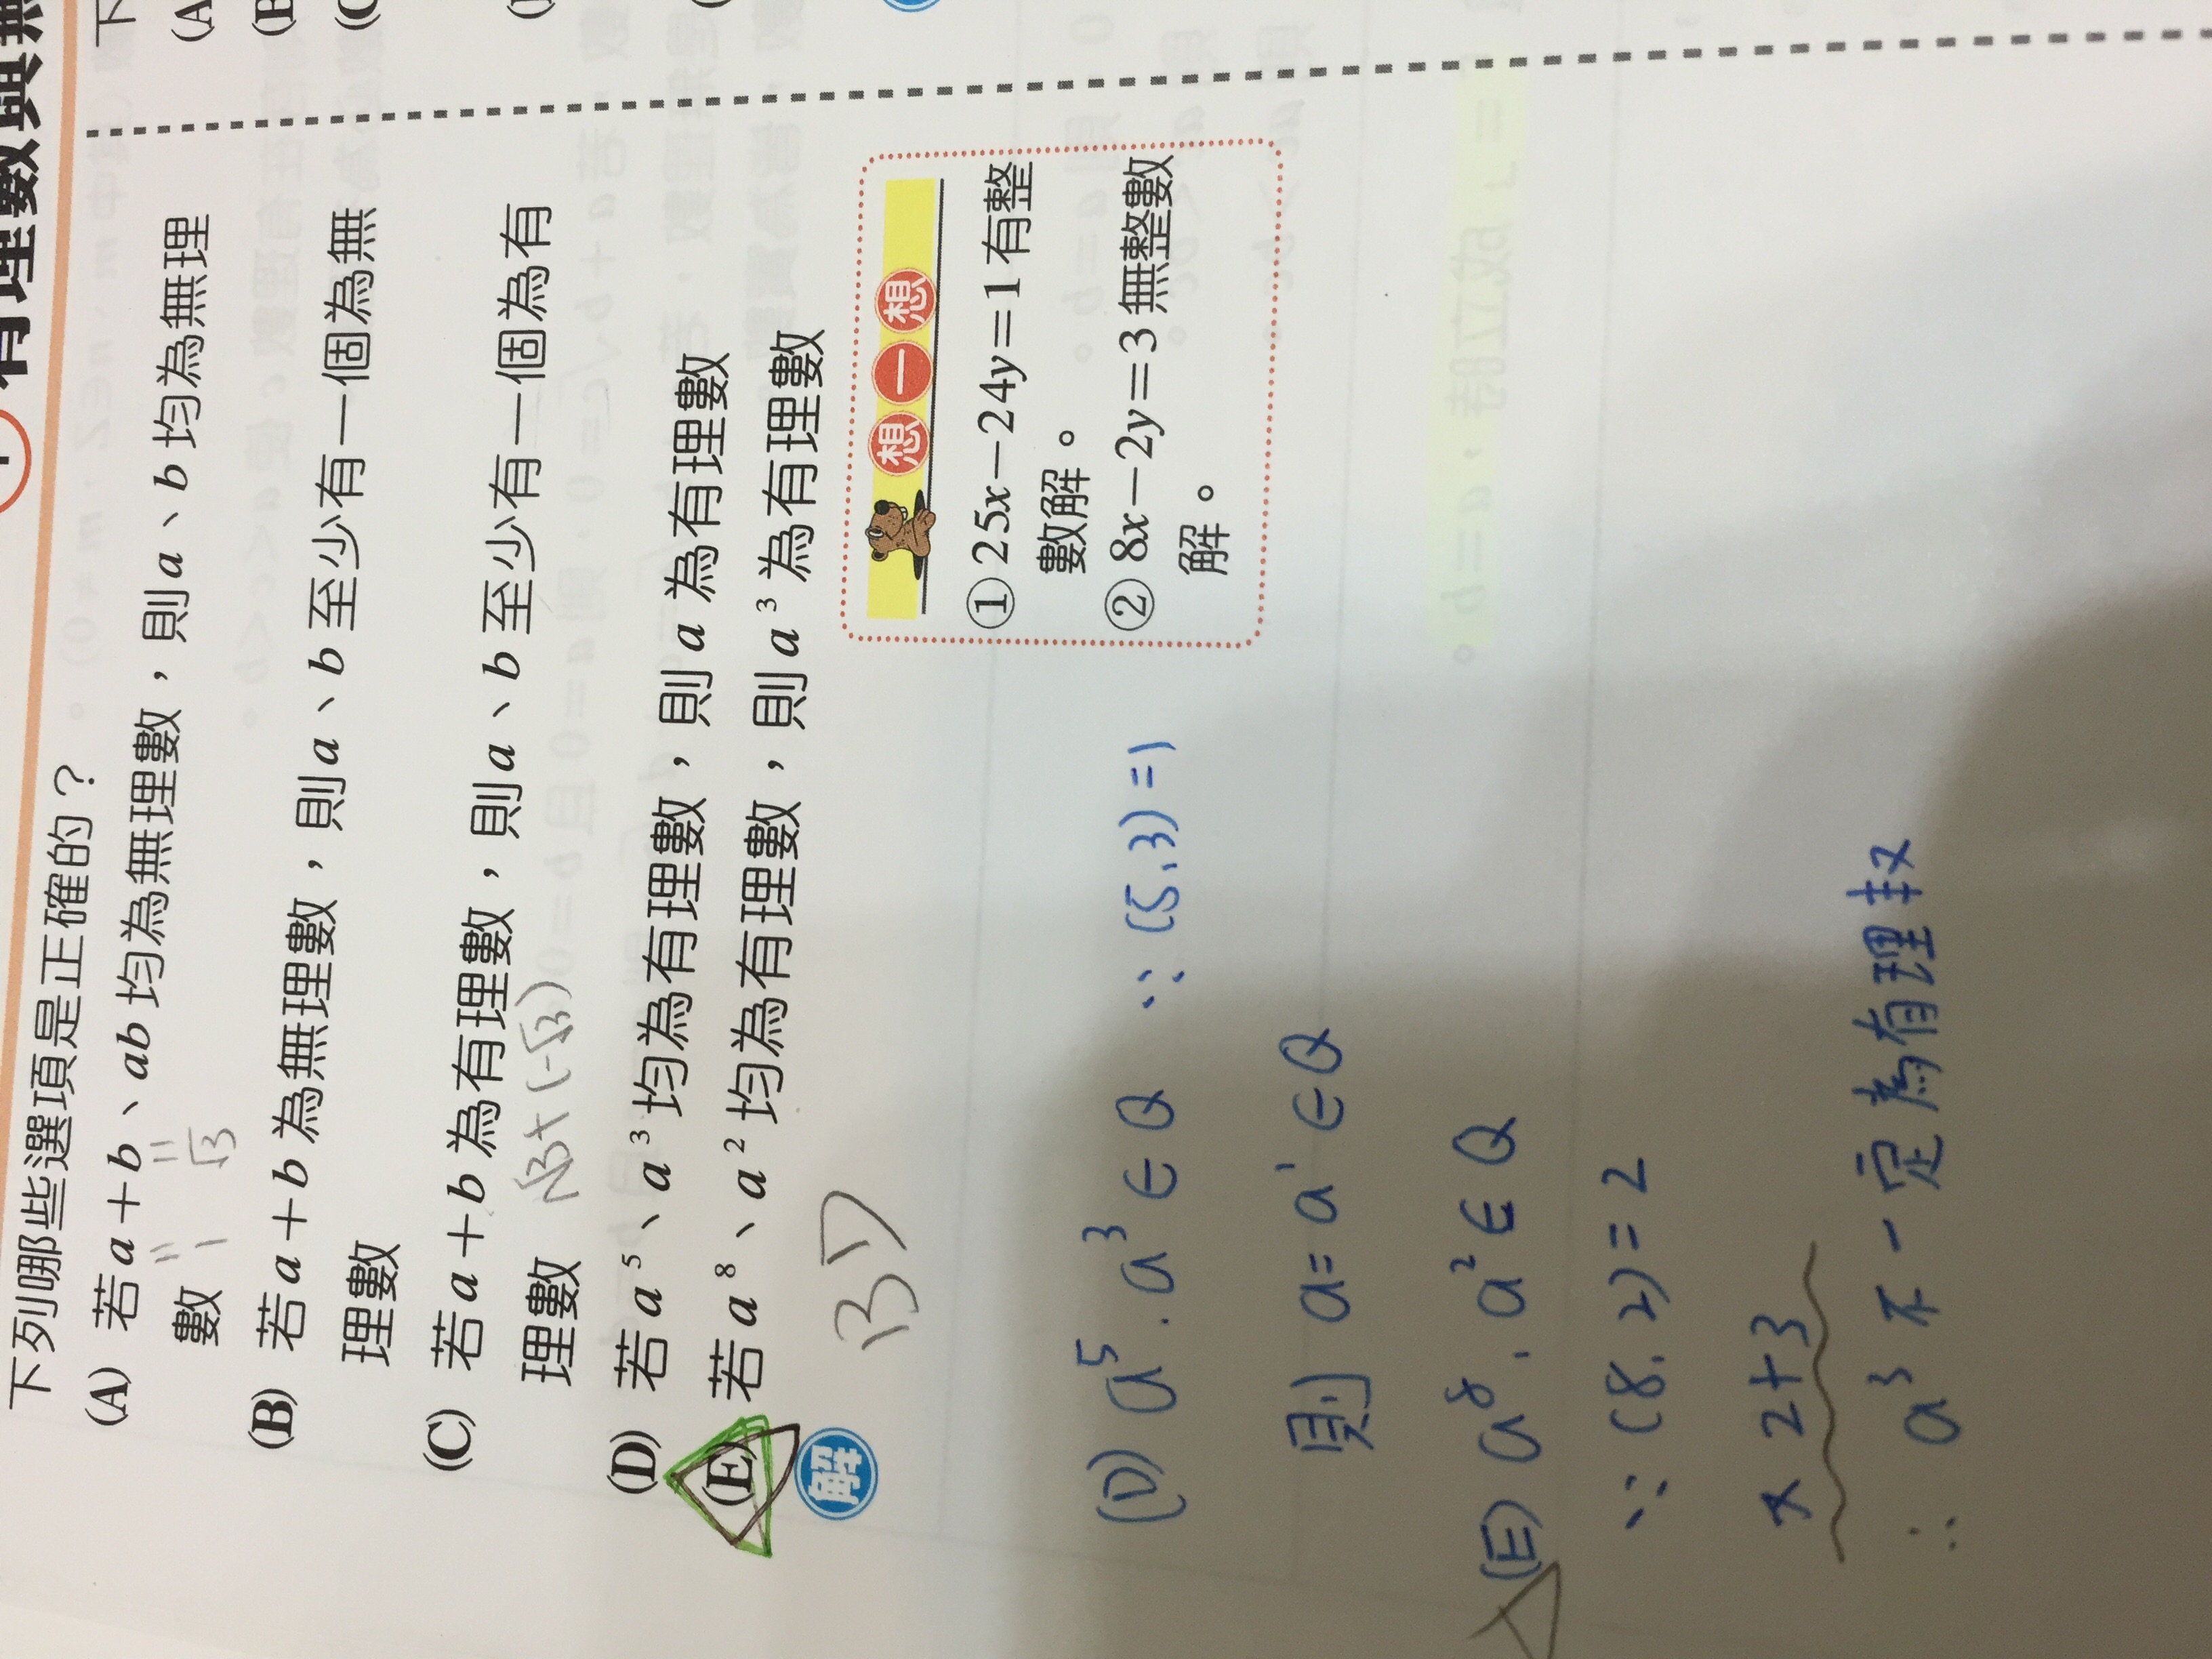 有理數與無
下列哪些選項是正確的？
(A) 若a＋b、ab 均為無理數，則a、b 均為無理
數
＝1 ＝√3
(B) 若a＋b 為無理數，則a、b 至少有一個為無
理數
(C) 若a＋b 為有理數，則a、b 至少有一個為有
理數
√3+(-√3)
(D) 若a⁵、a³ 均為有理數，則a 為有理數
(E) 若a⁸、a² 均為有理數，則a³ 為有理數
解
想一想
①25x－24y＝1有整
數解。
②8x－2y＝3無整數
解。
(D) a⁵.a³∈Q ∵(5.3)=1
則 a=a¹∈Q
(E) a⁸.a²∈Q
∵(8.2)=2
x 2+3
∴ a³不一定為有理数
下
(A